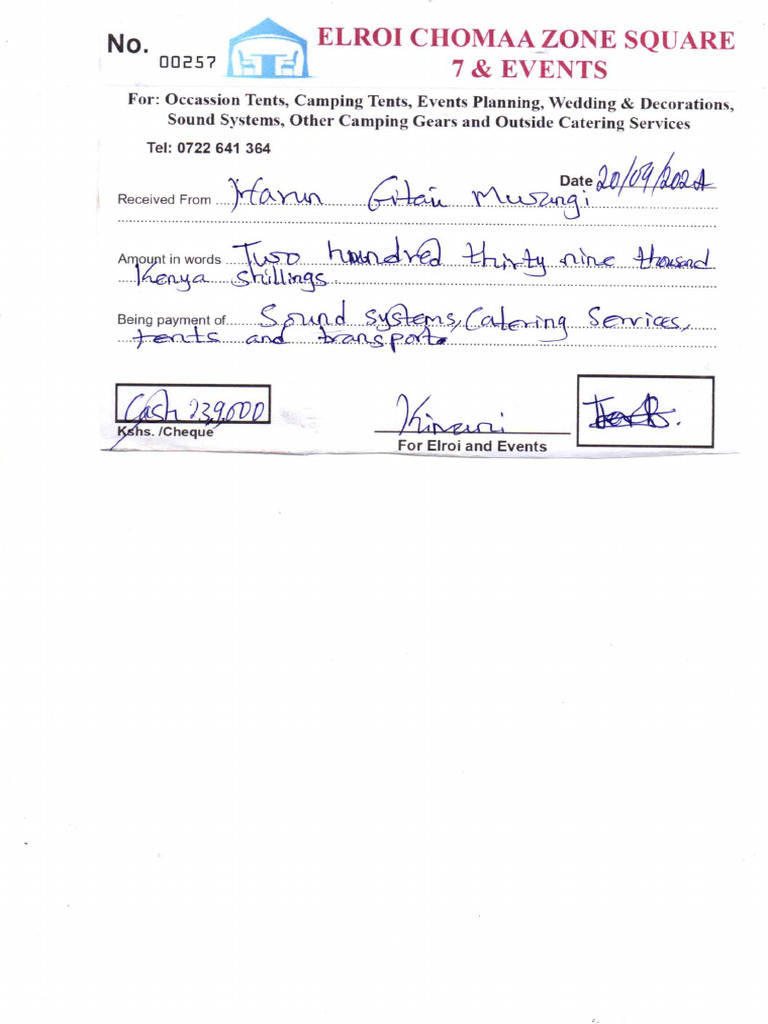 No. 00257
ELROI CHOMAA ZONE SQUARE
7 & EVENTS
For: Occassion Tents, Camping Tents, Events Planning, Wedding & Decorations,
Sound Systems, Other Camping Gears and Outside Catering Services
Tel: 0722 641 364
Date 20/09/2024
Received From Harun Gitau Mwangi
Amount in words Two hundred thirty nine thousand
Kenya shillings
Being payment of Sound systems, Catering Services,
tents and transport.
Cash 239,000
Kshs. /Cheque
For Elroi and Events